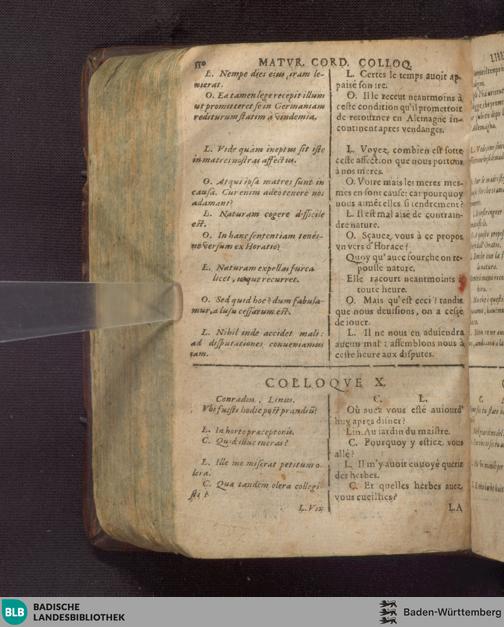 550 MATVR. CORD. COLLOQ.
L. Nempe dies eius iram le-
nierat.
O. Ea tamen lege recepit illum
ut promitteret se in Germaniam
rediturum statim à vindemia.
L. Vide quàm ineptus sit iste
in matres nostras affectus.
O. Atqui ipsa matres sunt in
causa. Cur enim adeo tenere nos
adamant?
L. Naturam cogere difficile
est.
O. In hanc sententiam tenes-
ne versum ex Horatio?
L. Naturam expellas furca
licet, usque recurret.
O. Sed quid hoc? dum fabula-
mur, a lusu cessatum est.
L. Nihil inde accidet mali:
ad disputationes conueniamus
tam.
L. Certes le temps auoit ap-
paisé son ire.
O. Il le receut neantmoins à
ceste condition qu'il promettoit
de retourner en Alemagne in-
continent apres vendanges.
L. Voyez, combien est sotte
ceste affection que nous portons
à nos meres.
O. Voire mais les meres mes-
mes en sont cause: car pourquoy
nous aimēt elles si tendrement?
L. Il est mal aisé de contrain-
dre nature.
O. Sçauez vous à ce propos
vn vers d'Horace?
Quoy qu'auec fourche on re-
poulse nature,
Elle racourt neantmoins à
toute heure.
O. Mais qu'est ceci? tandis
que nous deuisons, on a cessé
de iouer.
L. Il ne nous en aduiendra
aucun mal: assemblons nous à
ceste heure aux disputes.
COLLOQVE X.
Conradus, Linus.
Vbi fuisti hodie post prandiū?
L. In horto praeceptoris.
C. Quid illuc meras?
L. Ille me miserat petitum o-
lera.
C. Qua tandem olera collegi-
sti?
L. Vix
C. L.
Où auez vous esté auiourd'
huy apres disner?
Lin. Au iardin du maistre.
C. Pourquoy y estiez vous
allé?
L. Il m'y auoit enuoyé querir
des herbes.
C. Et quelles herbes auez
vous cueillies?
LA
BLB BADISCHE
LANDESBIBLIOTHEK
Baden-Württemberg